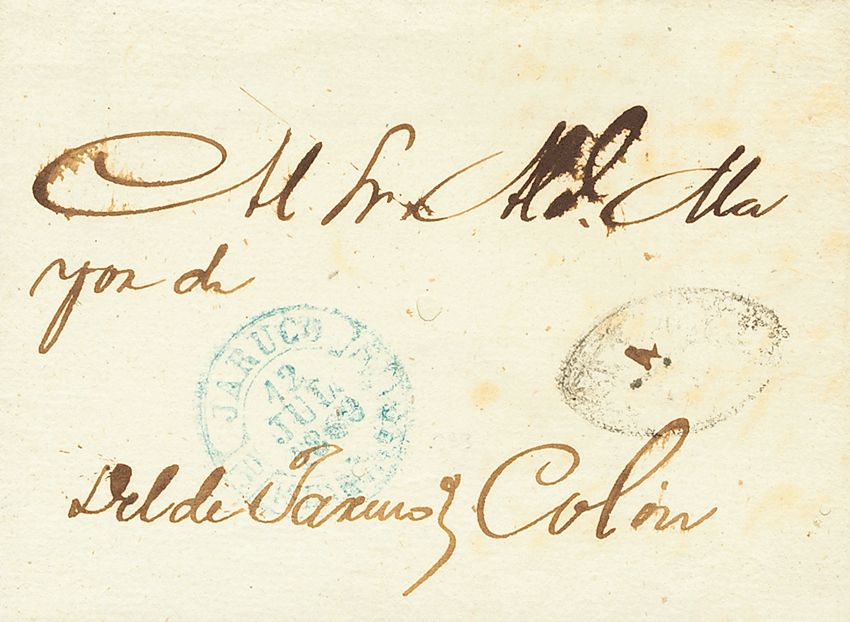 Al Sr Al.ᵈ Ma
yor de
JARUCO
12
JUL
Del de Jaruco Colón